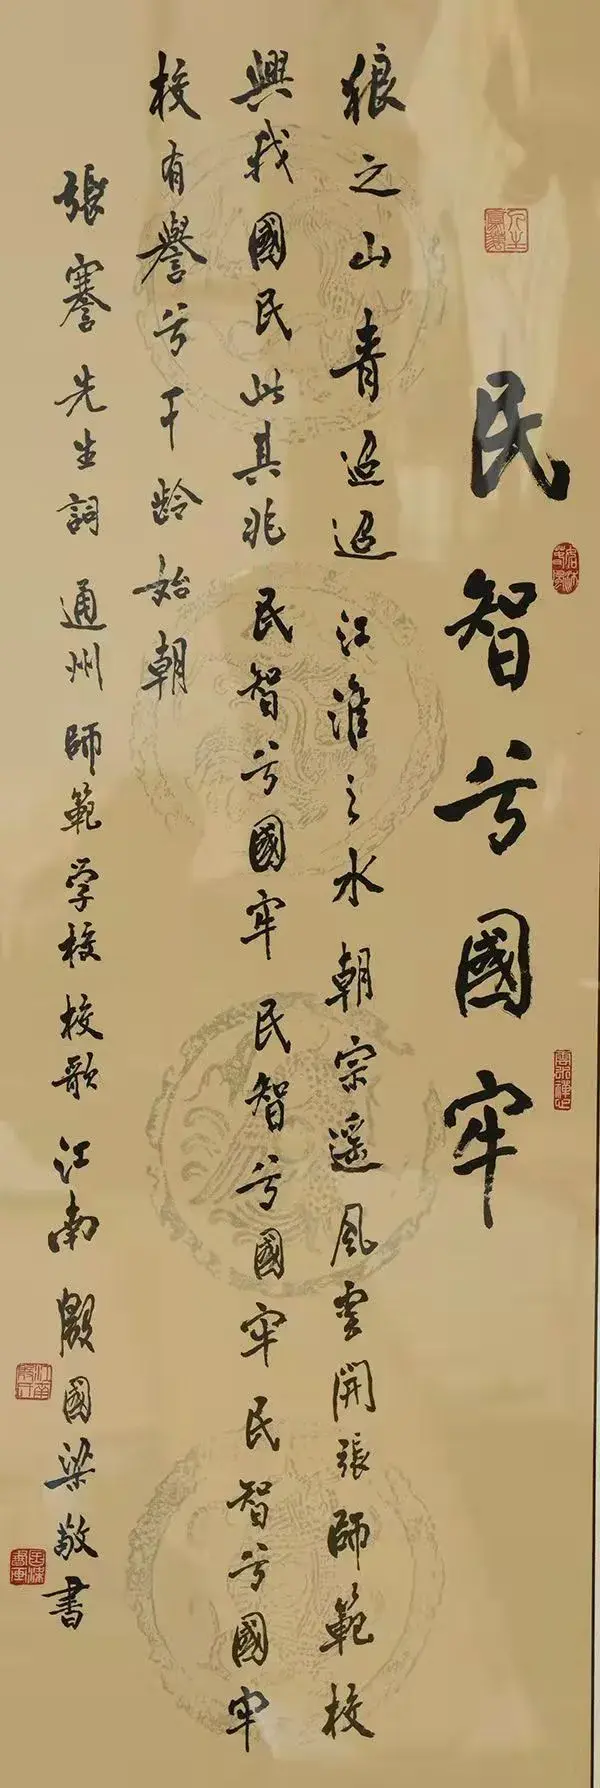 民智兮國牢
狼之山青迢迢江淮之水朝宗遥風雲開張師範校
興我國民此其兆民智兮國牢民智兮國牢民智兮國牢
校有譽兮千龄始朝
張謇先生詞 通州師範学校校歌 江南殷國梁敬書